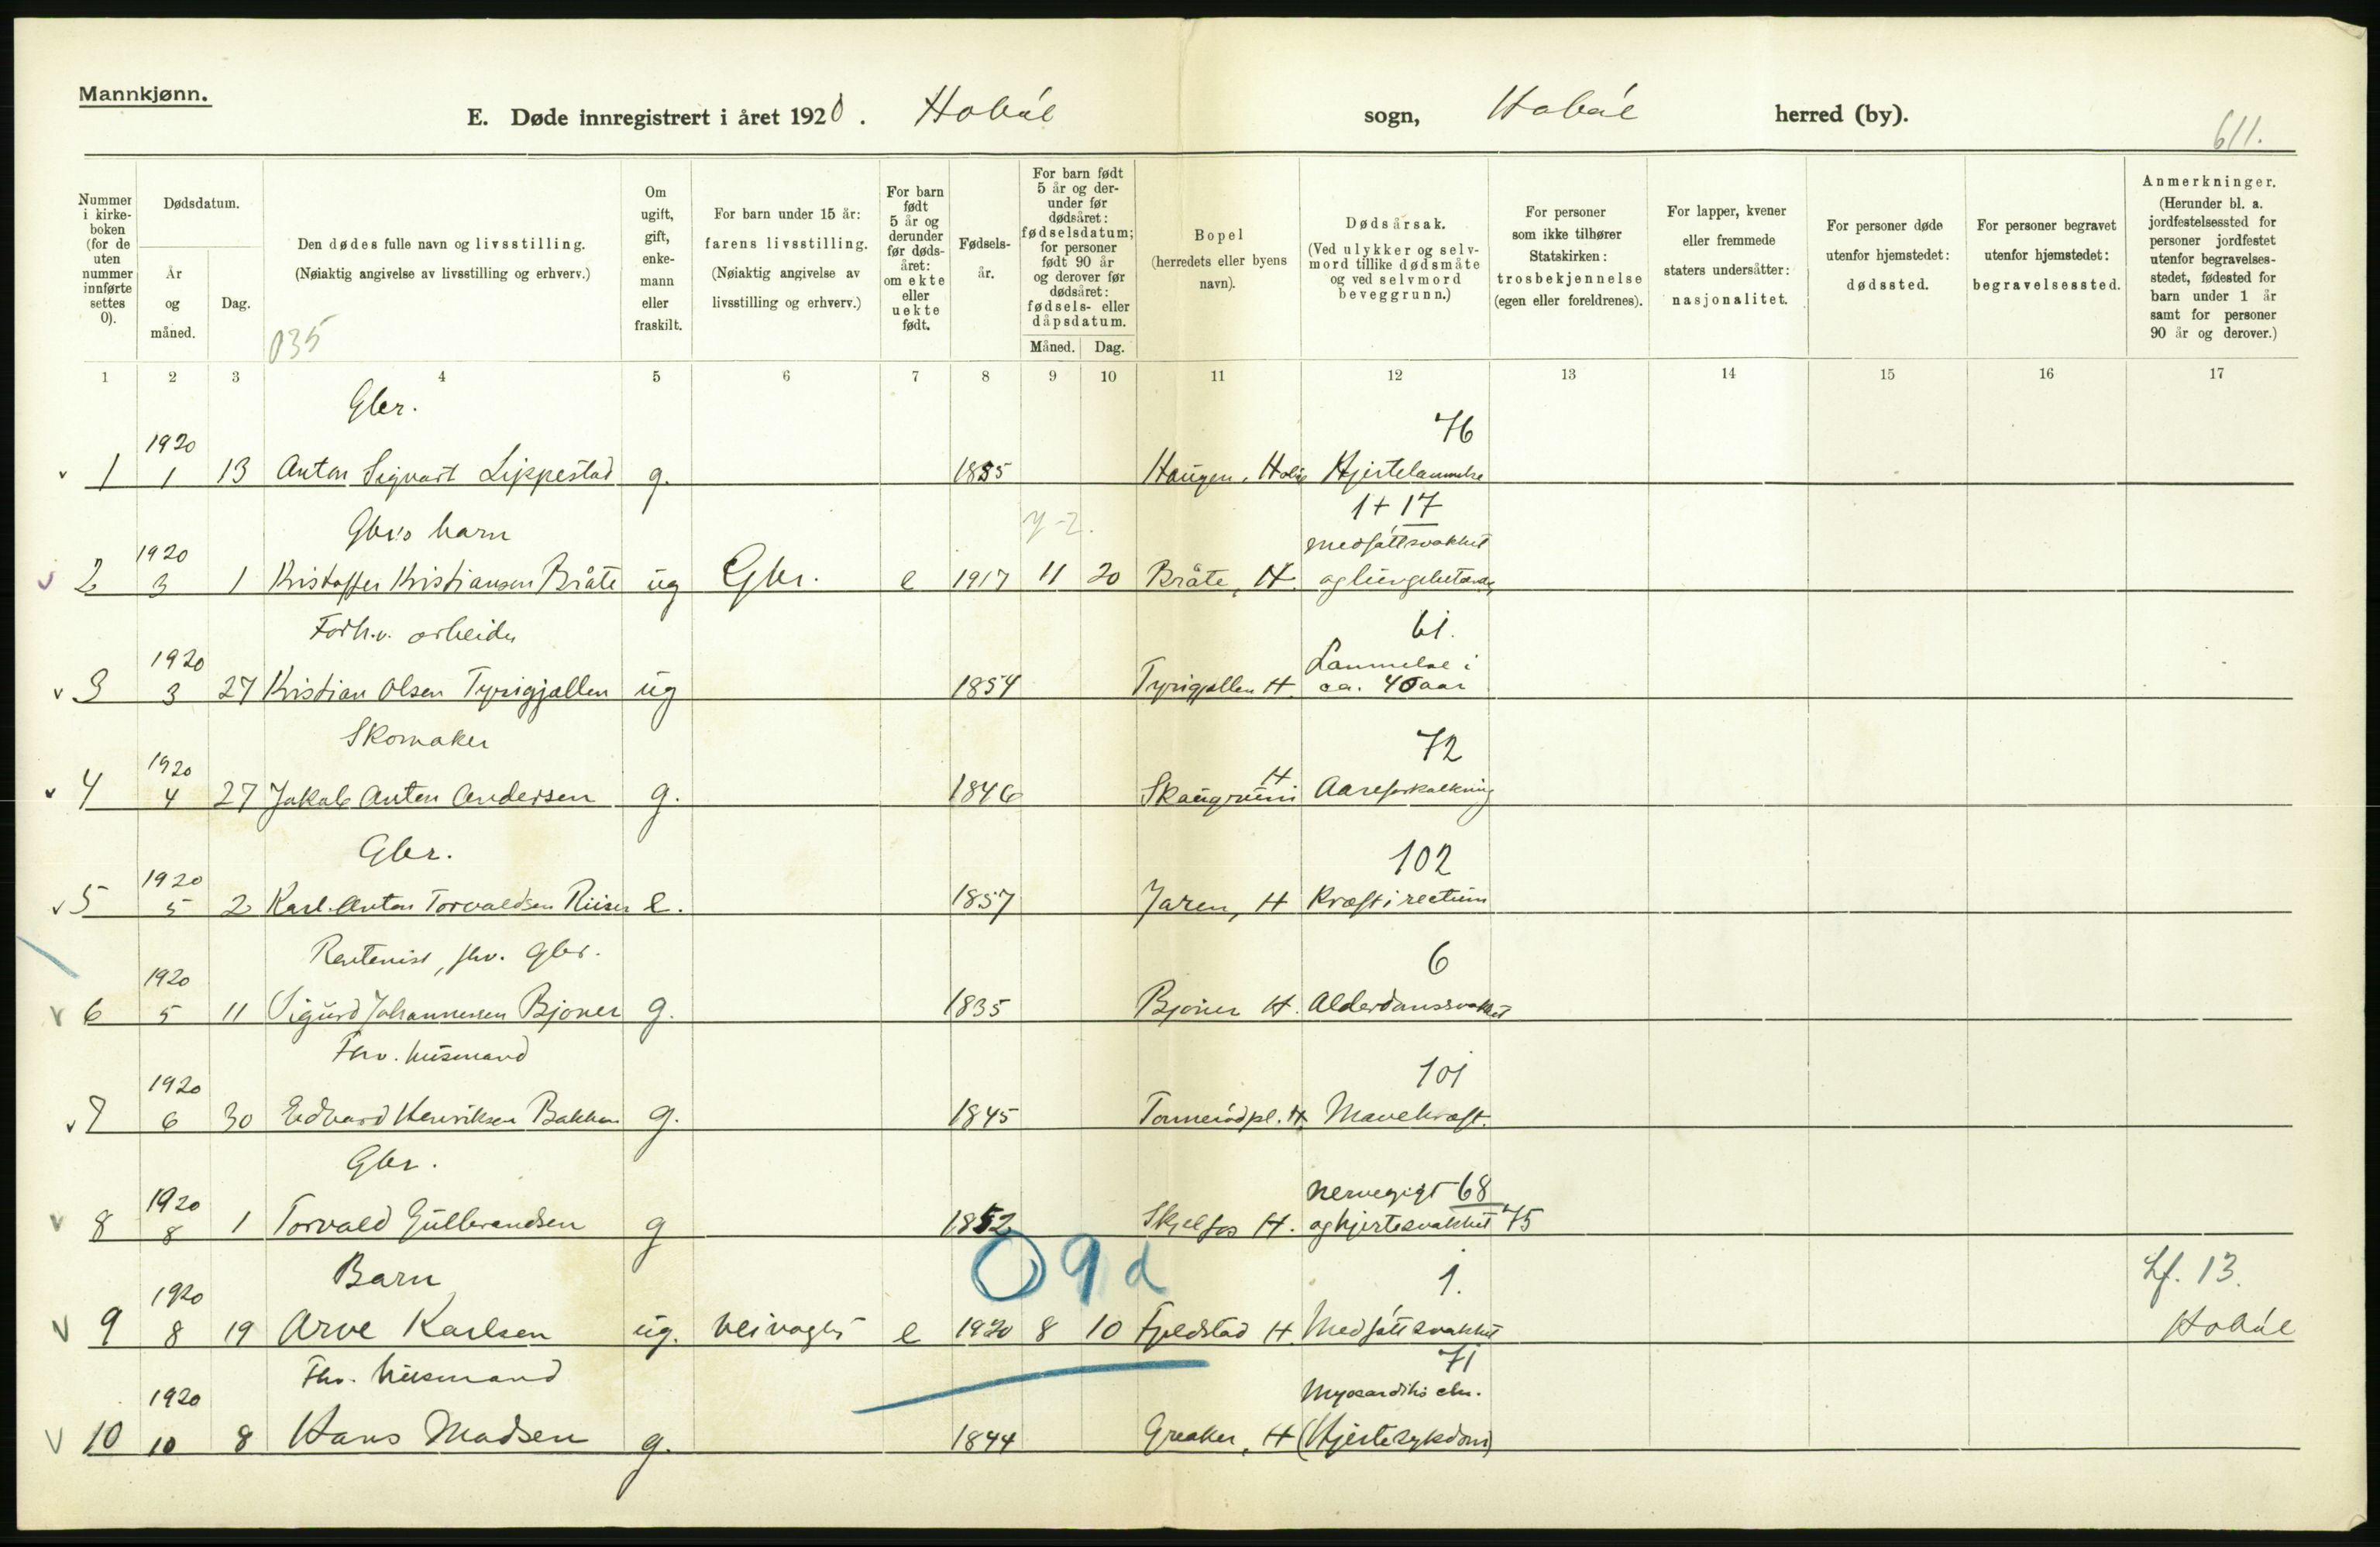 Mannkjønn.
E. Døde innregistrert i året 1920. Hobøl sogn, Hobøl herred (by).
611.
Nummer i kirkeboken (for de uten nummer innførte settes 0).
Dødsdatum.
År og måned.
Dag.
Den dødes fulle navn og livsstilling.
(Nøiaktig angivelse av livsstilling og erhverv.)
035
Om ugift, gift, enkemann eller fraskilt.
For barn under 15 år: farens livsstilling.
(Nøiaktig angivelse av livsstilling og erhverv.)
For barn født 5 år og derunder før dødsåret: om ekte eller uekte født.
Fødselsår.
For barn født 5 år og derunder før dødsåret: fødselsdatum; for personer født 90 år og derover før dødsåret: fødsels- eller dåpsdatum.
Måned. Dag.
Bopel
(herredets eller byens navn).
Dødsårsak.
(Ved ulykker og selvmord tillike dødsmåte og ved selvmord beveggrunn.)
For personer som ikke tilhører Statskirken: trosbekjennelse (egen eller foreldrenes).
For lapper, kvener eller fremmede staters undersåtter: nasjonalitet.
For personer døde utenfor hjemstedet: dødssted.
For personer begravet utenfor hjemstedet: begravelsessted.
Anmerkninger.
(Herunder bl. a. jordfestelsessted for personer jordfestet utenfor begravelsesstedet, fødested for barn under 1 år samt for personer 90 år og derover.)
1 2 3 4 5 6 7 8 9 10 11 12 13 14 15 16 17
Gbr. 76
v 1 1920 1 13 Anton Sigvart Lippestad g. 1855 Haugen, Hobøl Hjertelammelse
Gbr's barn 1+17
medfött svakhet
2 1920 3 1 Kristoffer Kristiansen Bråte ug Gbr. e 1917 11 20 Bråte, H. og lungebetend
Forh.v. arbeider 61.
Lammelse i
v 3 1920 3 27 Kristian Olsen Tyrigjøllen ug 1854 Tyrigjøllen H. ca. 40 aar
Skomaker 72
v 4 1920 4 27 Jakob Anton Andersen g. 1846 Skaugrum H Aareforkalkning
Gbr. 102
v 5 1920 5 2 Karl Anton Torvaldsen Riiser e. 1857 Jaren, H Kræft i rectum
Rentenist, fhv. Gbr. 6
v 6 1920 5 11 Sigurd Johannessen Bjoner g. 1835 Bjoner H. Alderdomssvakhet
Fhv. husmand 101
v 7 1920 6 30 Edvard Henriksen Bakken g. 1845 Tommerödpl. H. Mavekræft.
Gbr. Nervegigt 68
v 8 1920 8 1 Torvald Gulbrandsen g 1852 Skjelfos H. og hjertesvakhet 75
09d
Barn 1. Lf. 13.
v 9 1920 8 19 Arve Karlsen ug. veivogter e 1920 8 10 Fjeldstad H. Medfött svakhet Hobøl
Fhv. husmand 71
Myocarditis chr.
v 10 1920 10 8 Hans Madsen g. 1844 Greaker, H (Hjertesykdom)